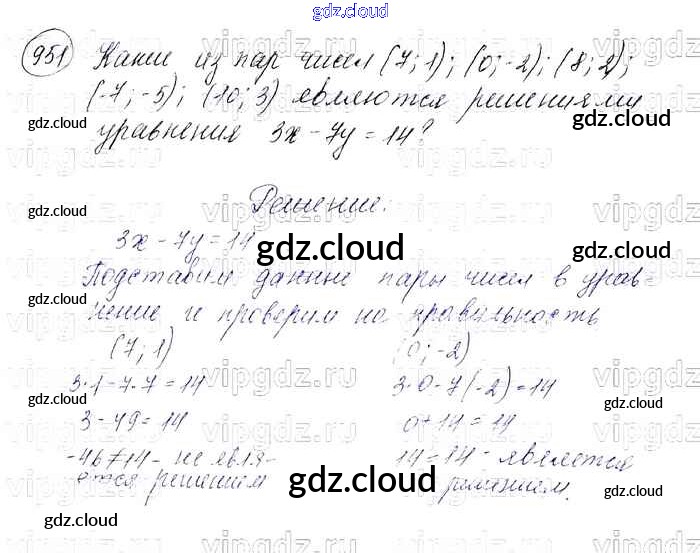 gdz.cloud
951 Какие из пар чисел (7; 1); (0; -2); (8; 2);
(-7; -5); (10; 3) являются решениями
gdz.cloud gdz.cloud
уравнения 3x - 7y = 14?
Решение:
gdz.cloud
3x - 7y = 14
gdz.cloud gdz.cloud
Подставим данные пары чисел в урав-
нение и проверим на правильность
(7; 1) (0; -2)
gdz.cloud
3·1-7·7=14 3·0-7(-2)=14
gdz.cloud gdz.cloud
3-49=14 0+14=14
-46≠14- не явля- 14=14- является
ется решением решением.
gdz.cloud gdz.cloud
gdz.cloud